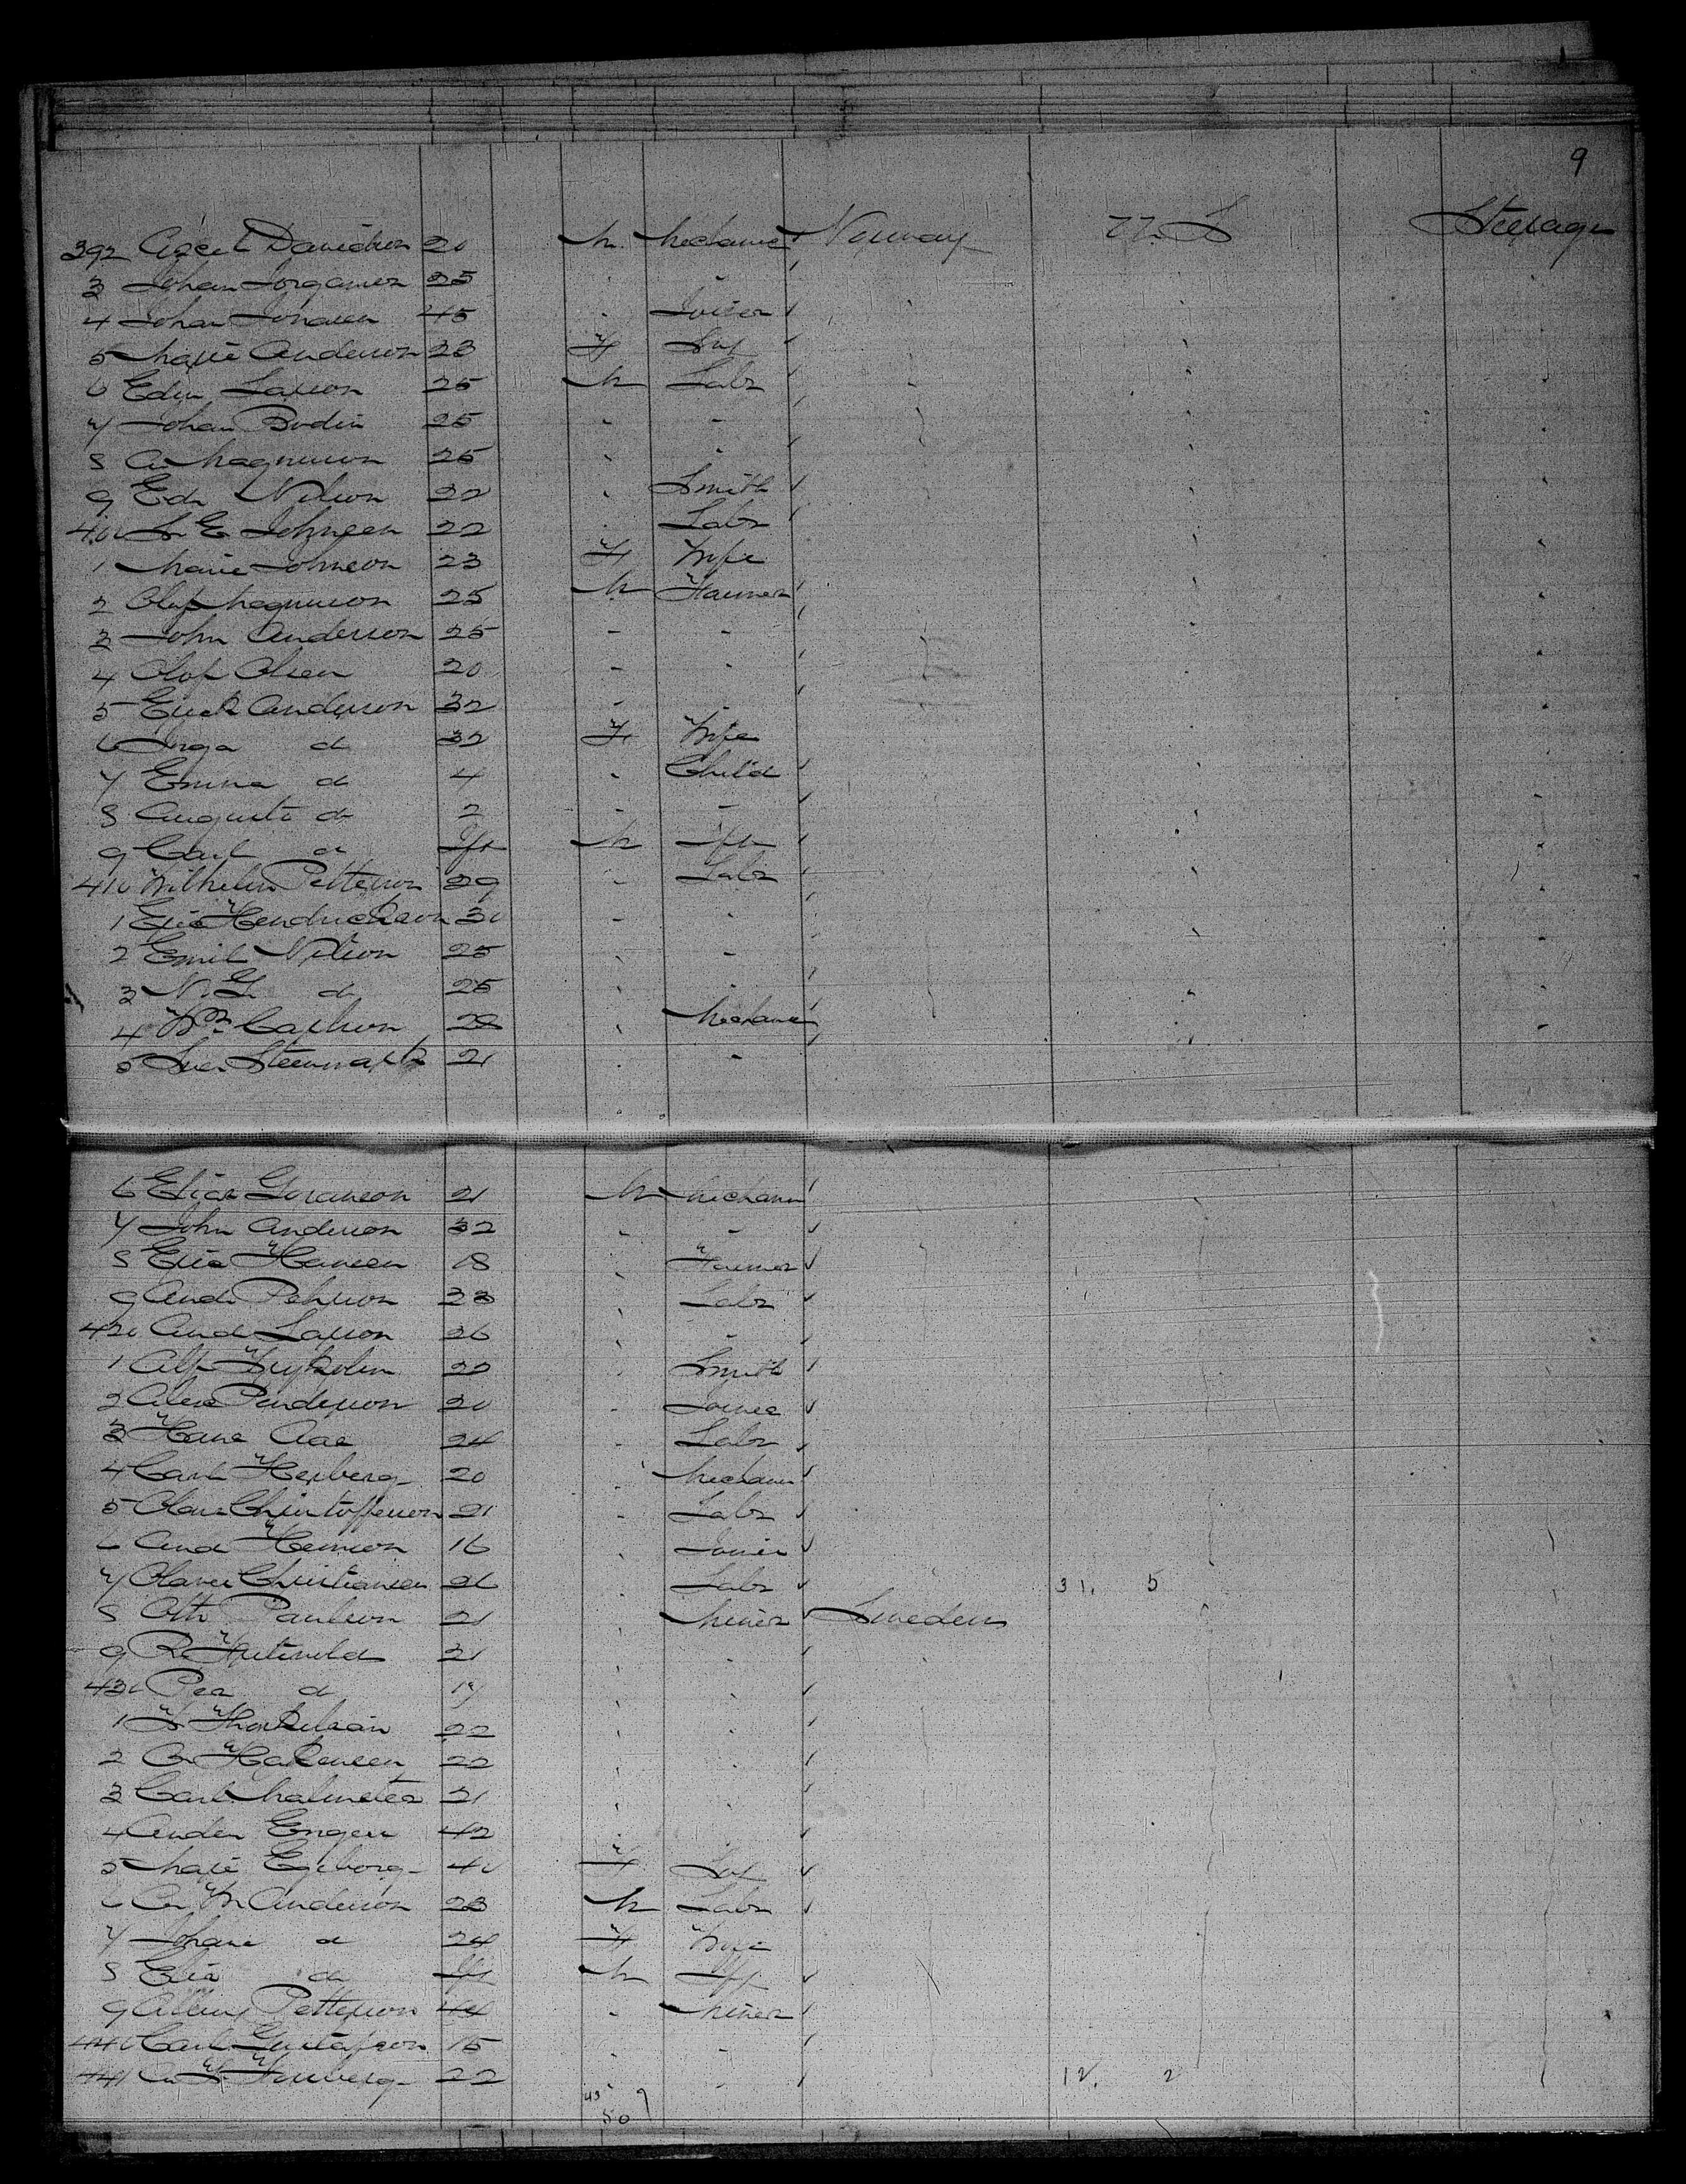 9
392 Axel Davidson 20 M Mechanic Norway U.S. Steerage
3 Johan Jorgansen 25 "
4 Johan Jonasen 45 " Joiner
5 Marie Anderson 23 F Sp
6 Edw Larson 25 M Labr
7 Johan Bodin 25 " "
8 A Magnuson 25 " "
9 Edw Nelson 22 " Smith
400 E Johnsen 22 " Labr
1 Marie Johnson 23 F Wife
2 Oluf Magnuson 25 M Farmer
3 John Anderson 25 " "
4 Olof Olsen 20 " "
5 Erick Anderson 32 " "
6 Inga do 32 F Wife
7 Emma do 4 " Child
8 Auguste do 2 " "
9 Carl do Inft M Inft
410 Wilhelm Petterson 29 " Labr
1 Eric Hendrickson 30 " "
2 Emil Nilson 25 " "
3 N.G. do 25 " "
4 Wm Carlson 22 " Mechanic
5 21 "
6 Elias Goranson 21 M Mechanic
7 John Anderson 32 " "
8 Eric Hansen 18 " Farmer
9 And Pehrson 23 " Labr
420 And Larson 26 " "
1 Alf 22 " Smith
2 20 " Joiner
3 Hans Aas 24 " Labr
4 Carl Herberg 20 " Mechanic
5 Olaus Christofferson 21 " Labr
6 And 16 " Joiner
7 Christiansen 26 " Labr 31. 5
8 Otto Paulson 21 Miner Sweden
9 21 " "
430 Per do 17 " "
1 22 " "
2 A Hakansen 22 " "
3 Carl Malmsten 21 " "
4 Anders Engen 42 " "
5 Marie Egeborg 40 F Sp
6 A M Anderson 23 M Labr
7 Johane do 24 F Wife
8 Eric do Inft M Inft
9 Petterson 44 " Miner
440 Carl Gustafson 15 " "
441 22 " " 12. 2
43 9
50